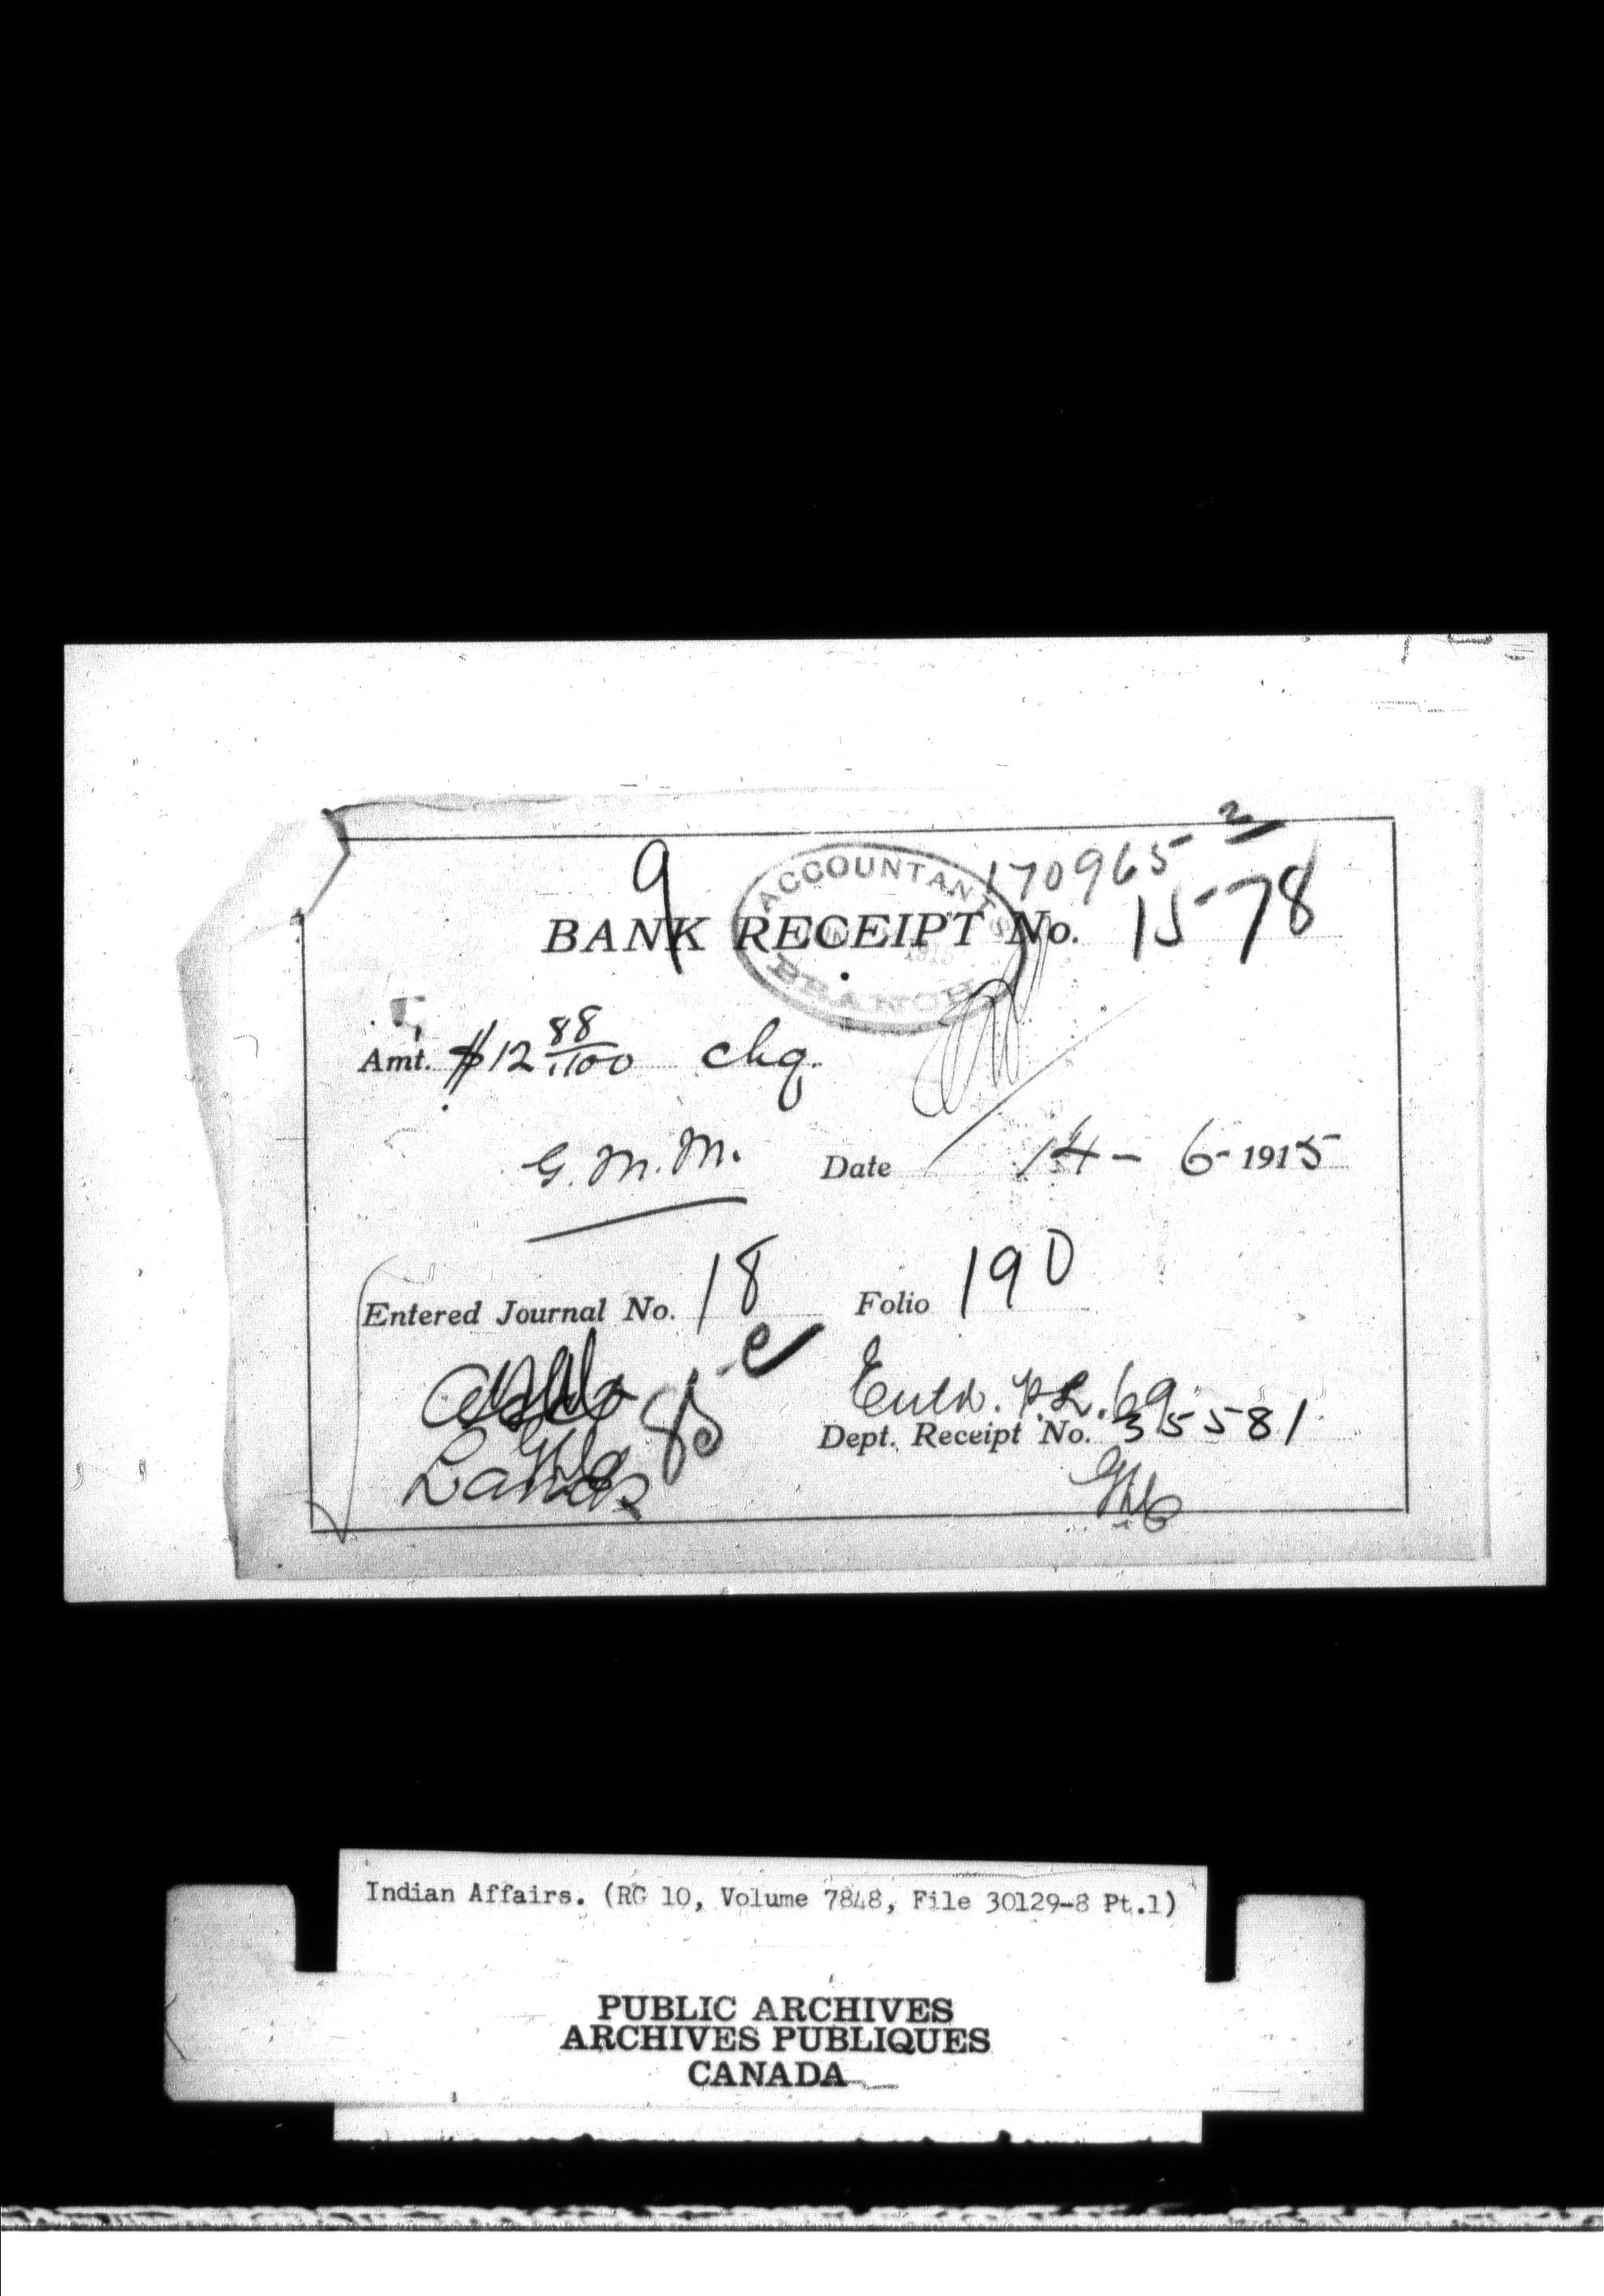 170965 2
9
ACCOUNTANT'S
BRANCH
BANK RECEIPT No. 1578
Amt. $12 88/100 chq.
G.M.M. Date 14 - 6 - 1915
Entered Journal No. 18 Folio 190
Entd. P.L. 69
Dept. Receipt No. 35581
Lands
Indian Affairs. (RG 10, Volume 7848, File 30129-8 Pt.1)
PUBLIC ARCHIVES
ARCHIVES PUBLIQUES
CANADA